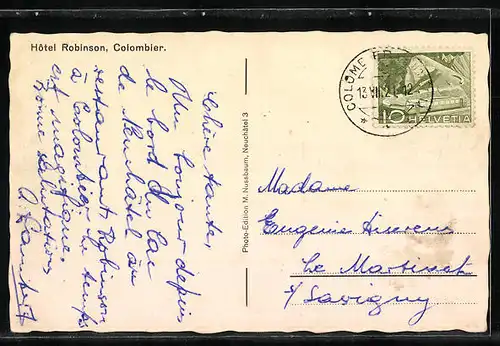 Hôtel Robinson, Colombier.
Chère tante,
Un bonjour depuis
le bord du lac
de Neuchâtel au
restaurant Robinson
à Colombier. Le temps
est magnifique.
Bonne salutations
Photo-Edition M. Nussbaum, Neuchâtel 3
COLOMBIER
13.VIII.
10
HELVETIA
Madame
Eugénie
Le
s/ Savigny